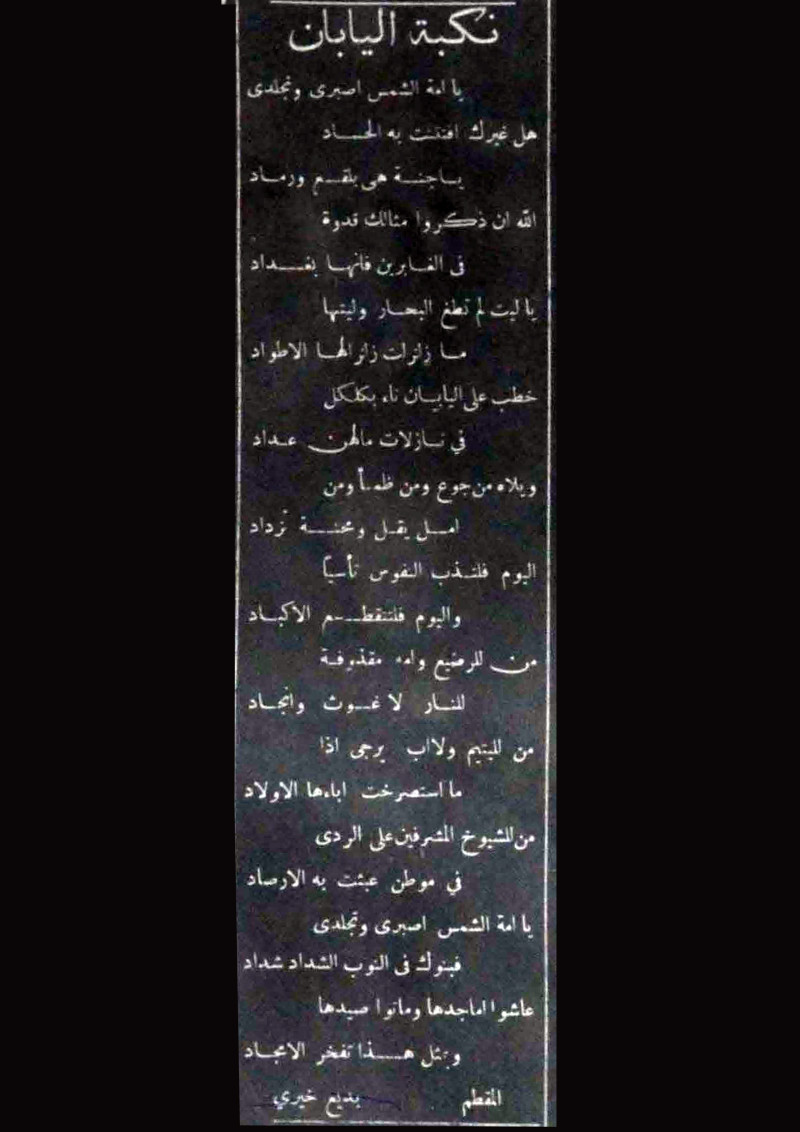 نكبة اليابان
يا امة الشمس اصبرى وتجلدى
هل غيرك افتتنت به الحساد
ياجنة هى بلقع ورماد
الله ان ذكروا مثالك قدوة
فى الغابرين فانها بغداد
يا ليت لم تطغ البحار وليتها
ما زلزلت زلزالها الاطواد
خطب على اليابان ناء بكلكل
في نازلات مالهن عداد
ويلاه من جوع ومن ظمأ ومن
امل يقل ومحنة تزداد
اليوم فلتذب النفوس تأسياً
واليوم فلتنقطع الاكباد
من للرضيع وامه مقذوفة
للنار لا غوث وانجاد
من لليتيم ولااب يرجى اذا
ما استصرخت اباءها الاولاد
من للشيوخ المشرفين على الردى
في موطن عبثت به الارصاد
يا امة الشمس اصبرى وتجلدى
فبنوك فى النوب الشداد شداد
عاشوا اماجدها وماتوا صيدها
وبمثل هذا تفخر الامجاد
المقطم بديع خيري